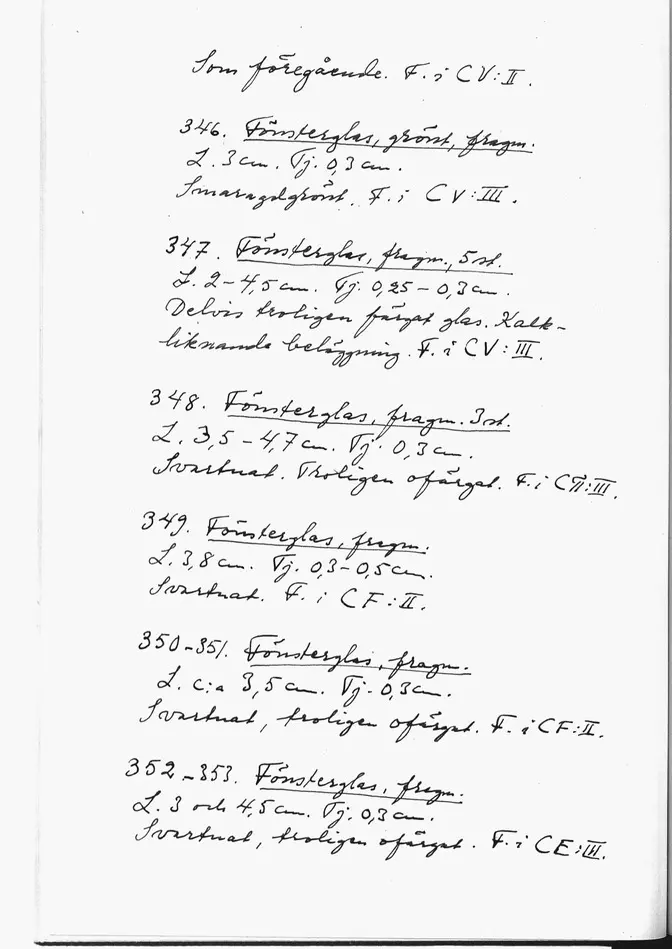 Som föregående. F. i CV:II.
346. Fönsterglas, grönt, fragm.
L. 3 cm. Tj. 0,3 cm.
Smaragdgrönt. F. i CV:III.
347. Fönsterglas, fragm., 5 st.
L. 2-4,5 cm. Tj. 0,25-0,3 cm.
Delvis troligen färgat glas. Kalk-
liknande beläggning. F. i CV:III.
348. Fönsterglas, fragm. 3 st.
L. 3,5-4,7 cm. Tj. 0,3 cm.
Svartnat. Troligen ofärgat. F. i
349. Fönsterglas, fragm.
L. 3,8 cm. Tj. 0,3-0,5 cm.
Svartnat. F. i CF:II.
350-351. Fönsterglas, fragm.
L. c:a 3,5 cm. Tj. 0,3 cm.
Svartnat, troligen ofärgat. F. i CF:II.
352-353. Fönsterglas, fragm.
L. 3 och 4,5 cm. Tj. 0,3 cm.
Svartnat, troligen ofärgat. F. i CE:III.